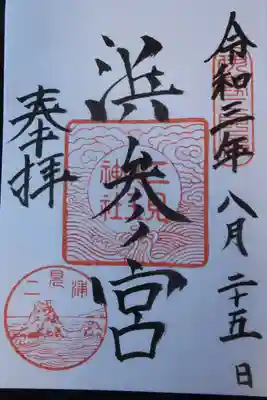 令和三年 八月 二十五日
浜参宮
奉拝
二見
神社
二見浦